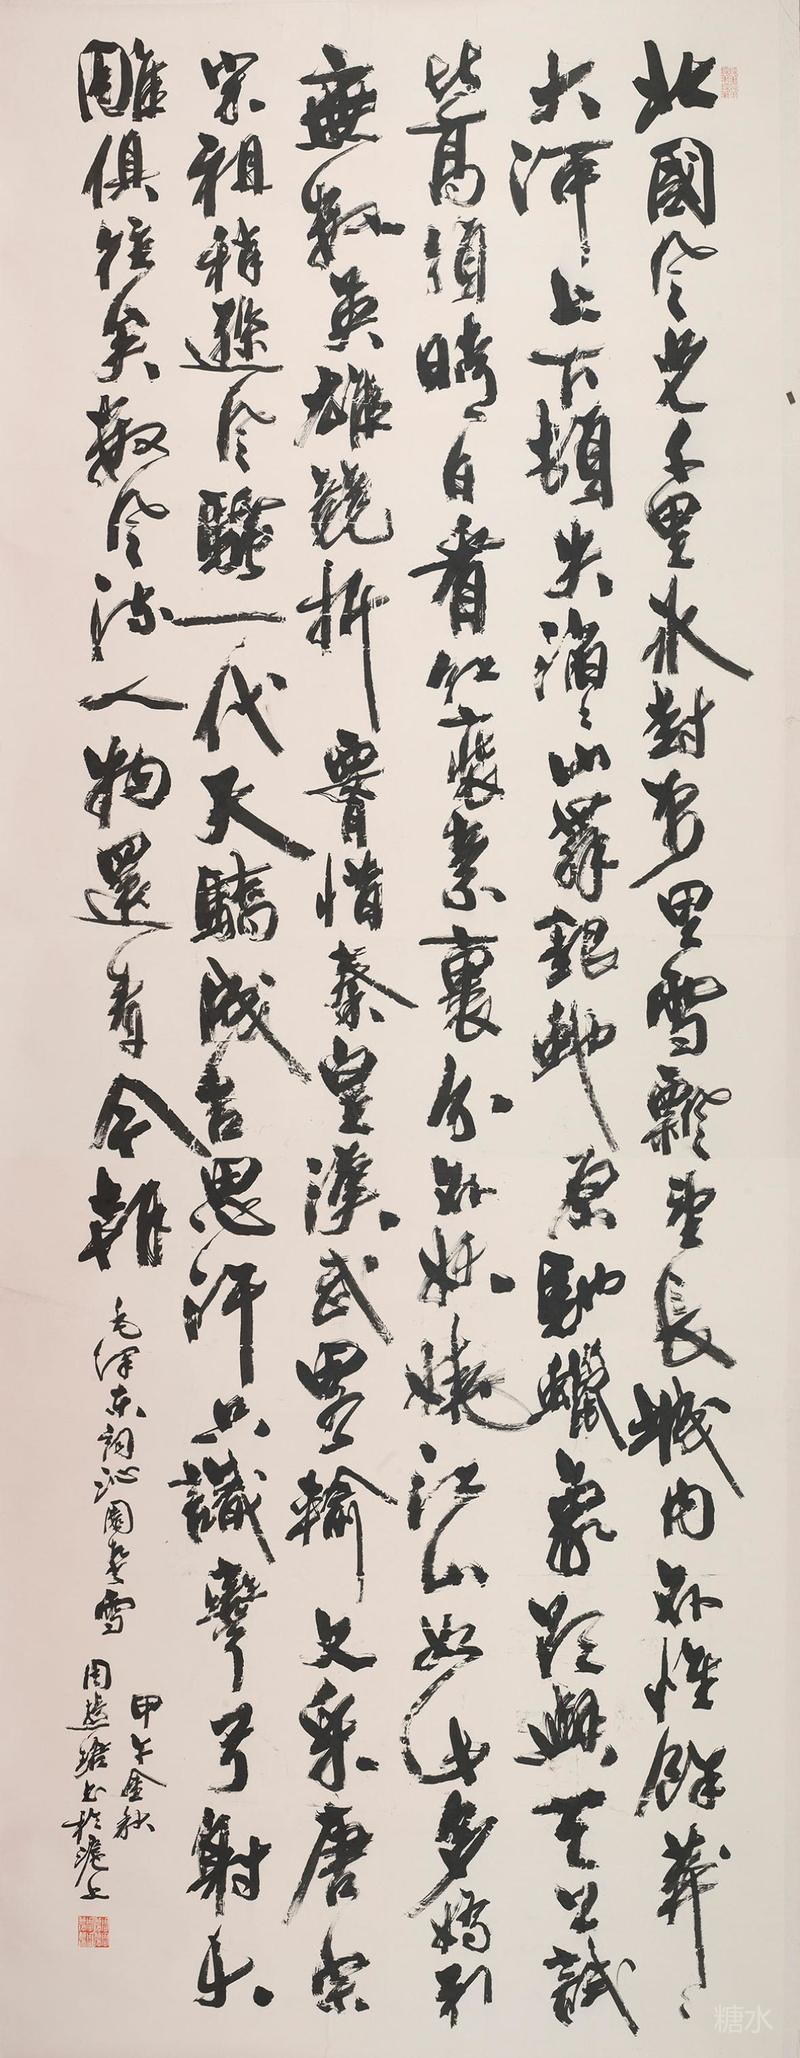 北國風光千里冰封萬里雪飄望長城內外惟餘莽〻
大河上下頓失滔〻山舞銀蛇原馳蠟象欲與天公試
比高須晴日看紅裝素裹分外妖嬈江山如此多嬌引
無數英雄競折腰惜秦皇漢武畧輸文采唐宗
宋祖稍遜風騷一代天驕成吉思汗只識彎弓射大
雕俱往矣數風流人物還看今朝
毛澤東詞沁園春雪
甲午金秋
周慧珺書於滬上
糖水